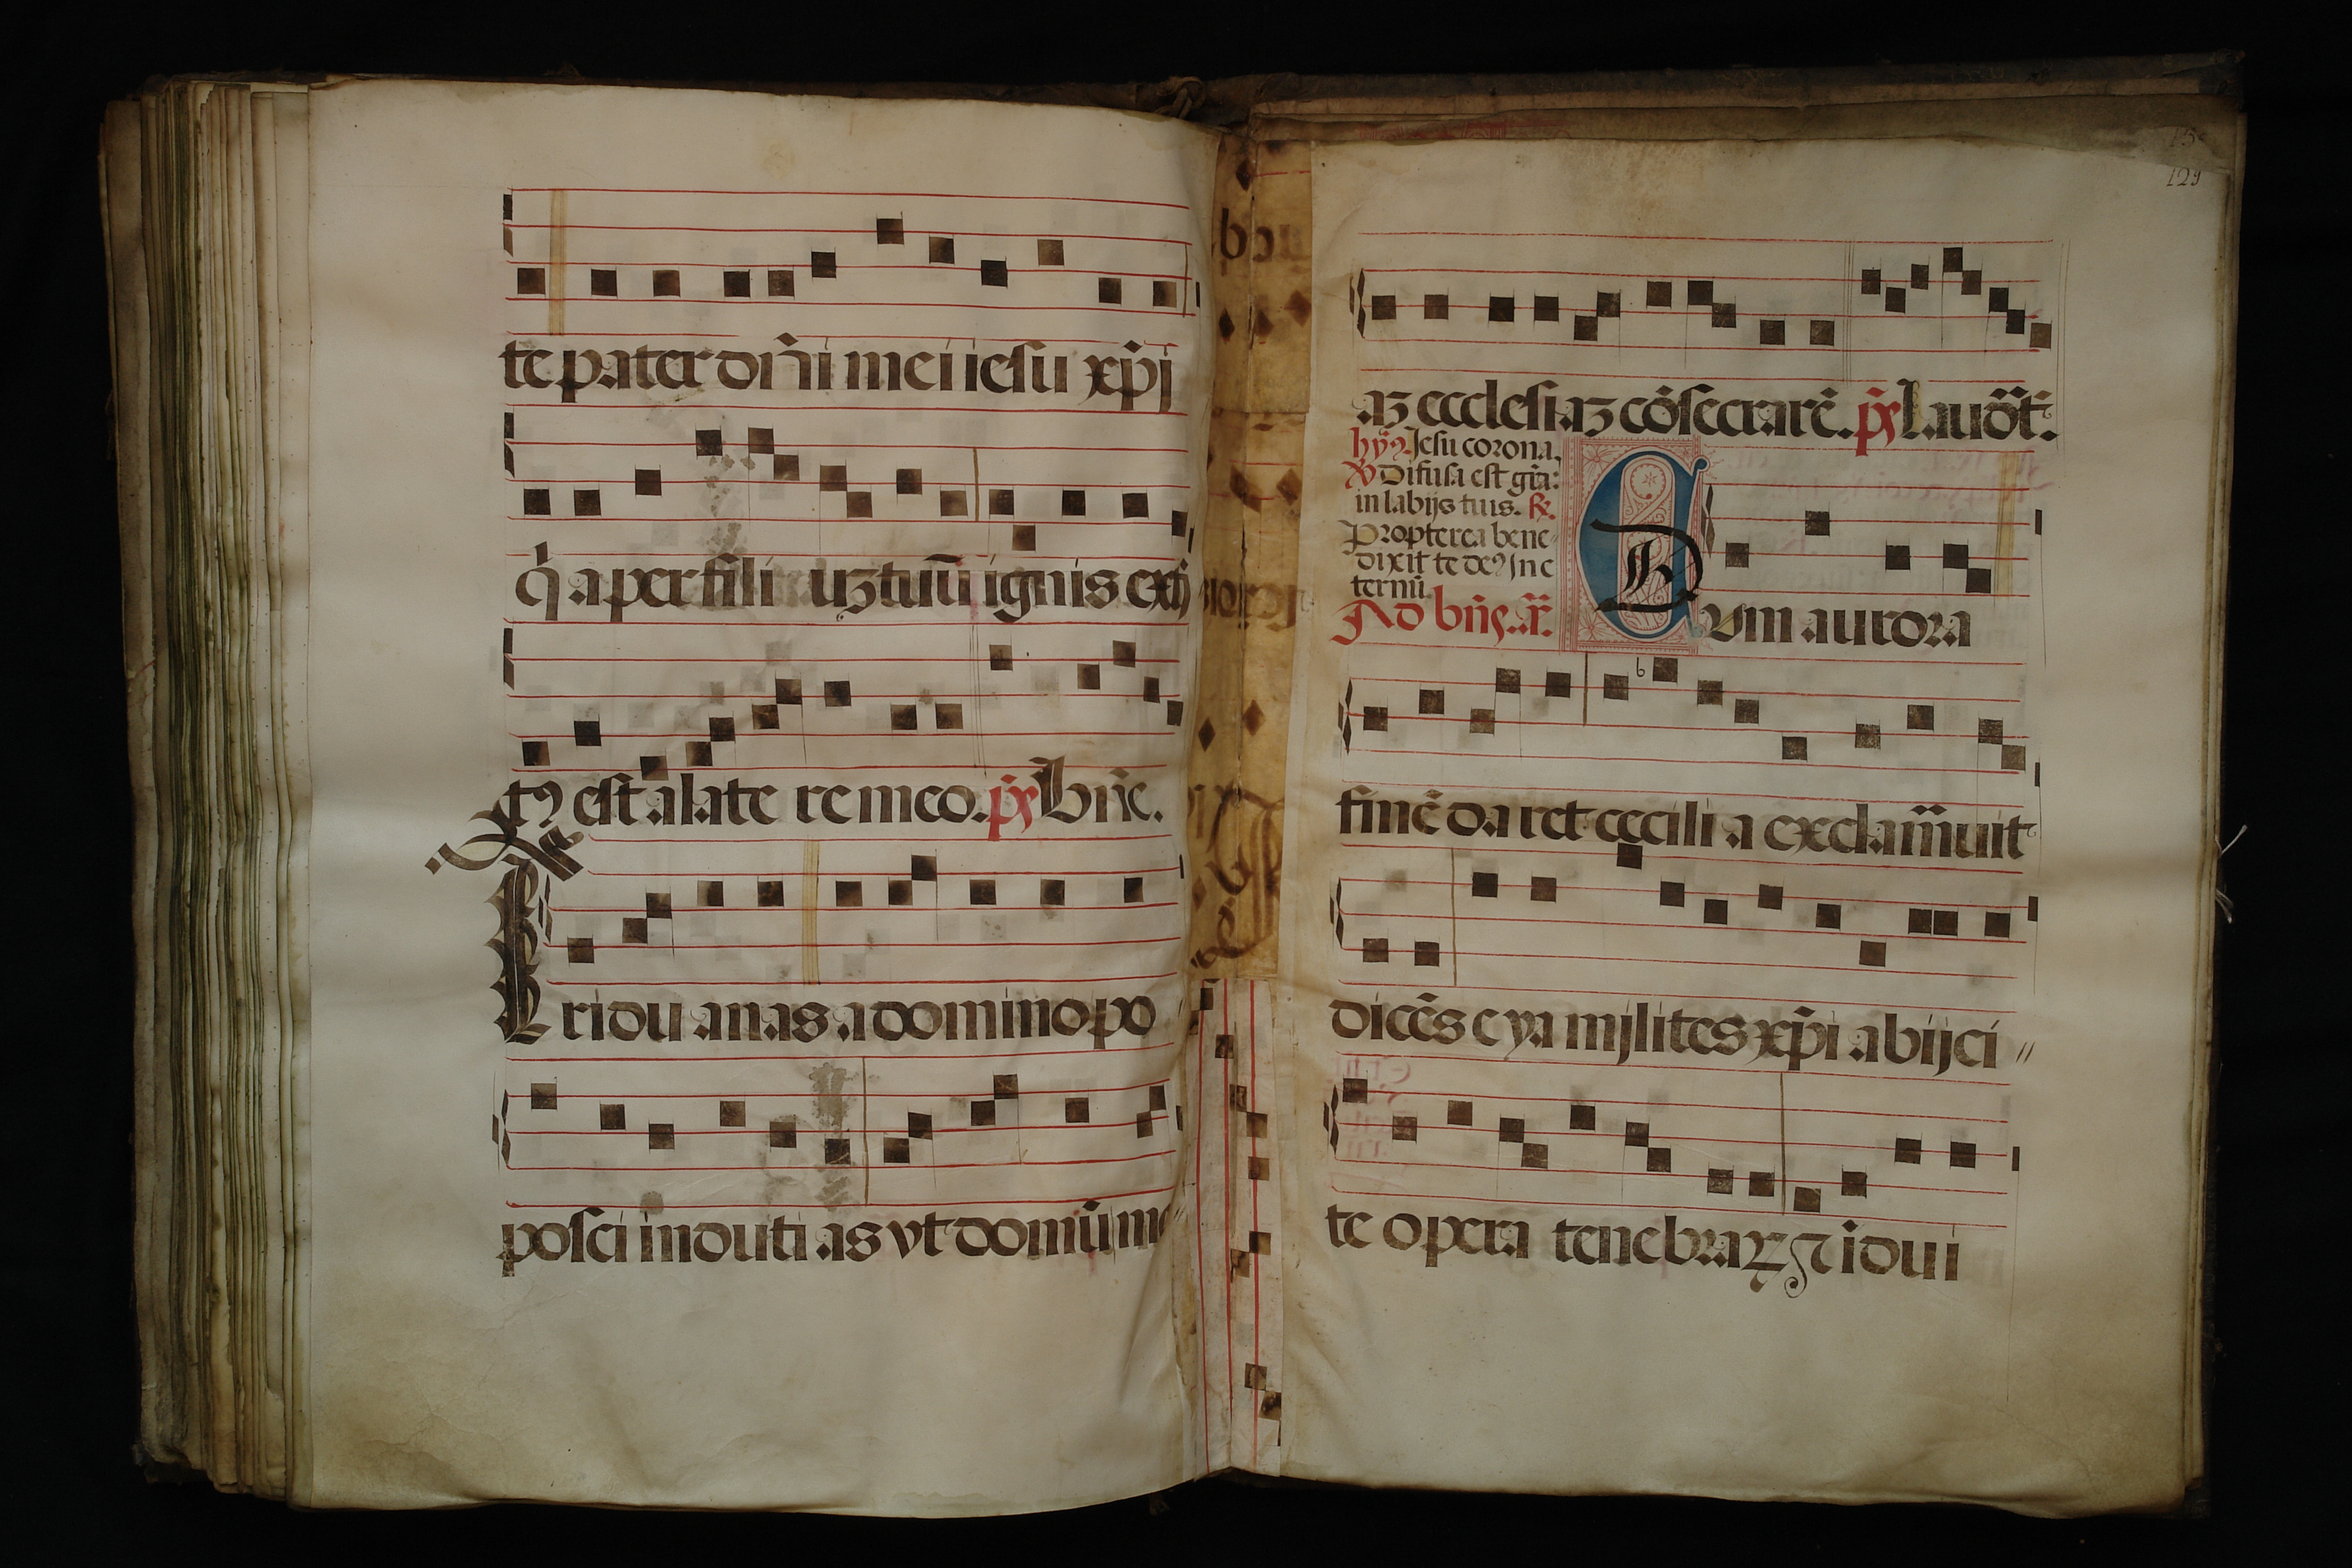 te pater dñi mei iesu xp̄i
q̇ a per fili uꝫ tuū ignis exti
tꝰ est a late re meo. ps̄ Bn̄e.
Triduanas a domino po
posci induti as vt domū me
aꝫ ecclesi aꝫ cōsecrarē. ps̄ Lauōt.
hȳꝰ Jesu corona.
℣ Difusa est gr̄a:
in labijs tuis. ℟.
Propterea bene
dixit te deꝰ jn e
ternū.
Ad bn̄s. añ. Cum aurora
finē daret cecili a exclam̄auit
dicēs eya mjlites xp̄i abijci //
te opera tenebraꝝ ⁊ idui
129